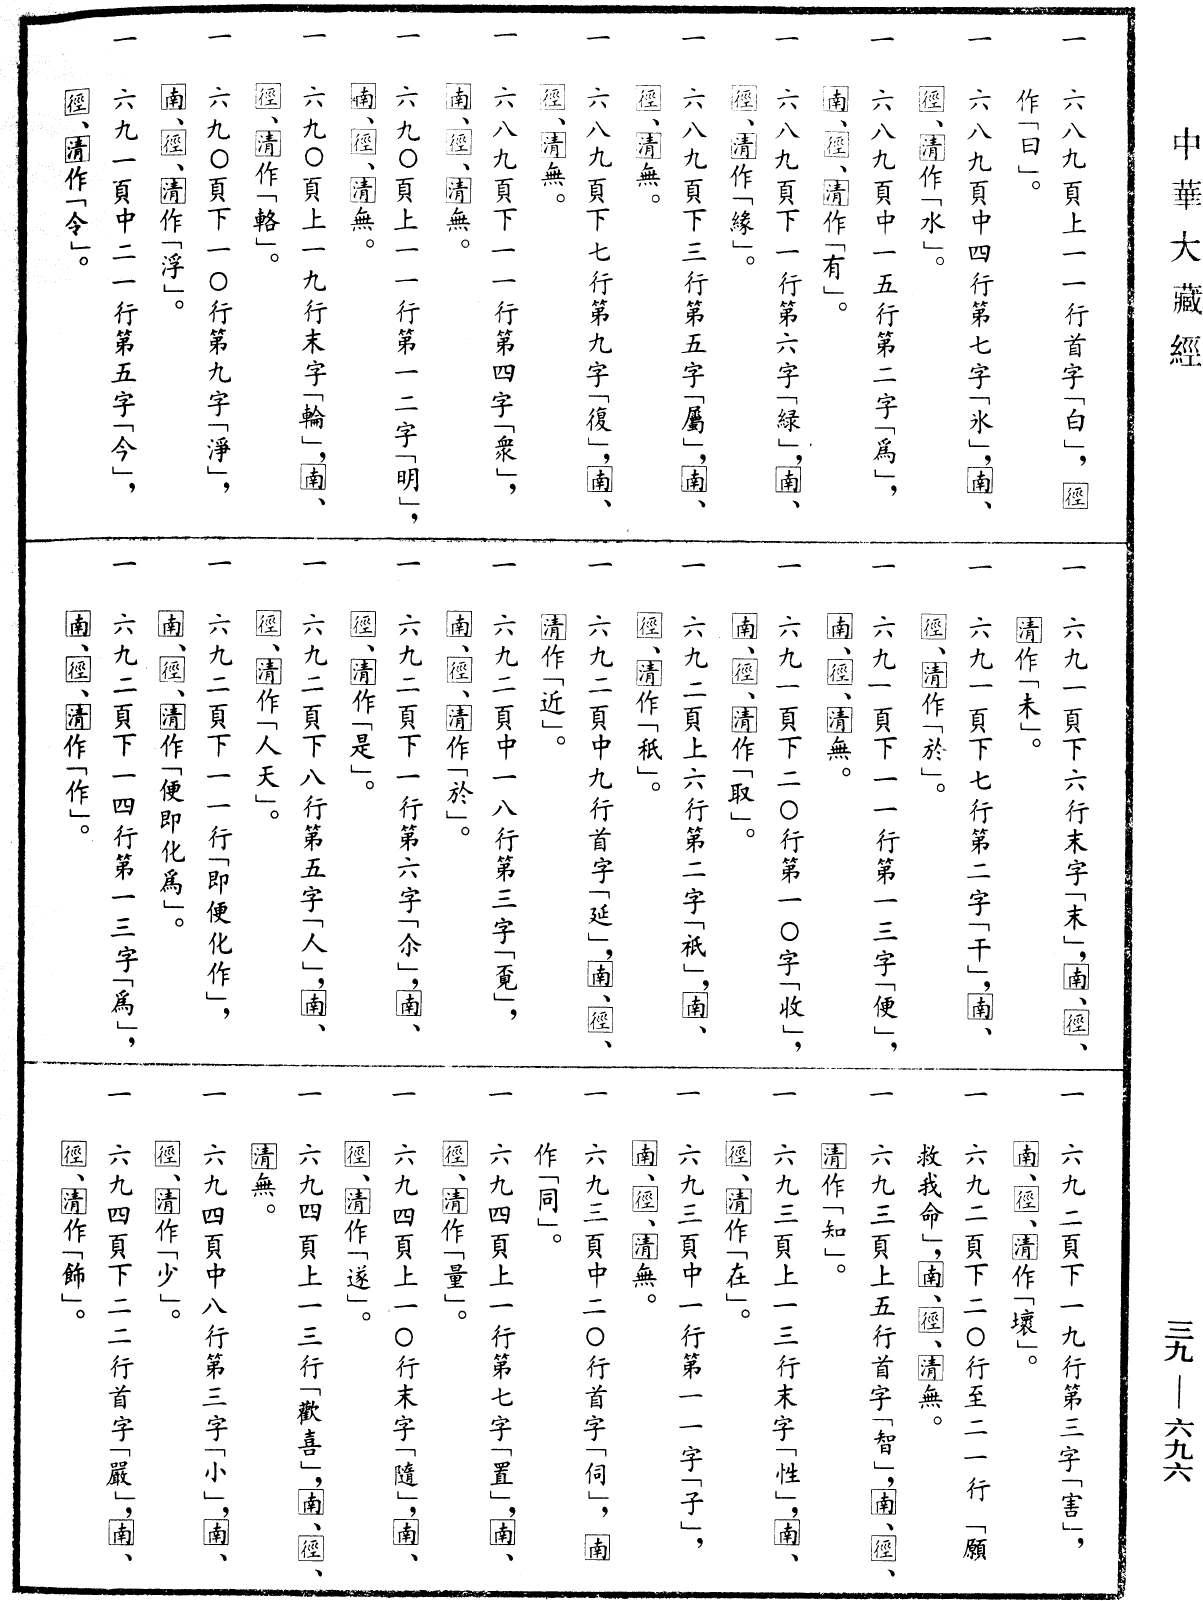 中華大藏經
一　六八九頁上一一行首字「白」，徑
作「曰」。
一　六八九頁中四行第七字「氷」，南、
徑、清作「水」。
一　六八九頁中一五行第二字「爲」，
南、徑、清作「有」。
一　六八九頁下一行第六字「緑」，南、
徑、清作「緣」。
一　六八九頁下三行第五字「屬」，南、
徑、清無。
一　六八九頁下七行第九字「復」，南、
徑、清無。
一　六八九頁下一一行第四字「衆」，
南、徑、清無。
一　六九〇頁上一一行第一二字「明」，
南、徑、清無。
一　六九〇頁上一九行末字「輪」，南、
徑、清作「輅」。
一　六九〇頁下一〇行第九字「淨」，
南、徑、清作「浮」。
一　六九一頁中二一行第五字「今」，
徑、清作「令」。
一　六九一頁下六行末字「末」，南、徑、
清作「未」。
一　六九一頁下七行第二字「干」，南、
徑、清作「於」。
一　六九一頁下一一行第一三字「便」，
南、徑、清無。
一　六九一頁下二〇行第一〇字「收」，
南、徑、清作「取」。
一　六九二頁上六行第二字「祇」，南、
徑、清作「秖」。
一　六九二頁中九行首字「延」，南、徑、
清作「近」。
一　六九二頁中一八行第三字「覔」，
南、徑、清作「於」。
一　六九二頁下一行第六字「尒」，南、
徑、清作「是」。
一　六九二頁下八行第五字「人」，南、
徑、清作「人天」。
一　六九二頁下一一行「即便化作」，
南、徑、清作「便即化爲」。
一　六九二頁下一四行第一三字「爲」，
南、徑、清作「作」。
一　六九二頁下一九行第三字「害」，
南、徑、清作「壞」。
一　六九二頁下二〇行至二一行「願
救我命」，南、徑、清無。
一　六九三頁上五行首字「智」，南、徑、
清作「知」。
一　六九三頁上一三行末字「性」，南、
徑、清作「在」。
一　六九三頁中一行第一一字「子」，
南、徑、清無。
一　六九三頁中二〇行首字「伺」，南
作「同」。
一　六九四頁上一行第七字「置」，南、
徑、清作「量」。
一　六九四頁上一〇行末字「隨」，南、
徑、清作「遂」。
一　六九四頁上一三行「歡喜」，南、徑、
清無。
一　六九四頁中八行第三字「小」，南、
徑、清作「少」。
一　六九四頁下二二行首字「嚴」，南、
徑、清作「飾」。
三九—六九六